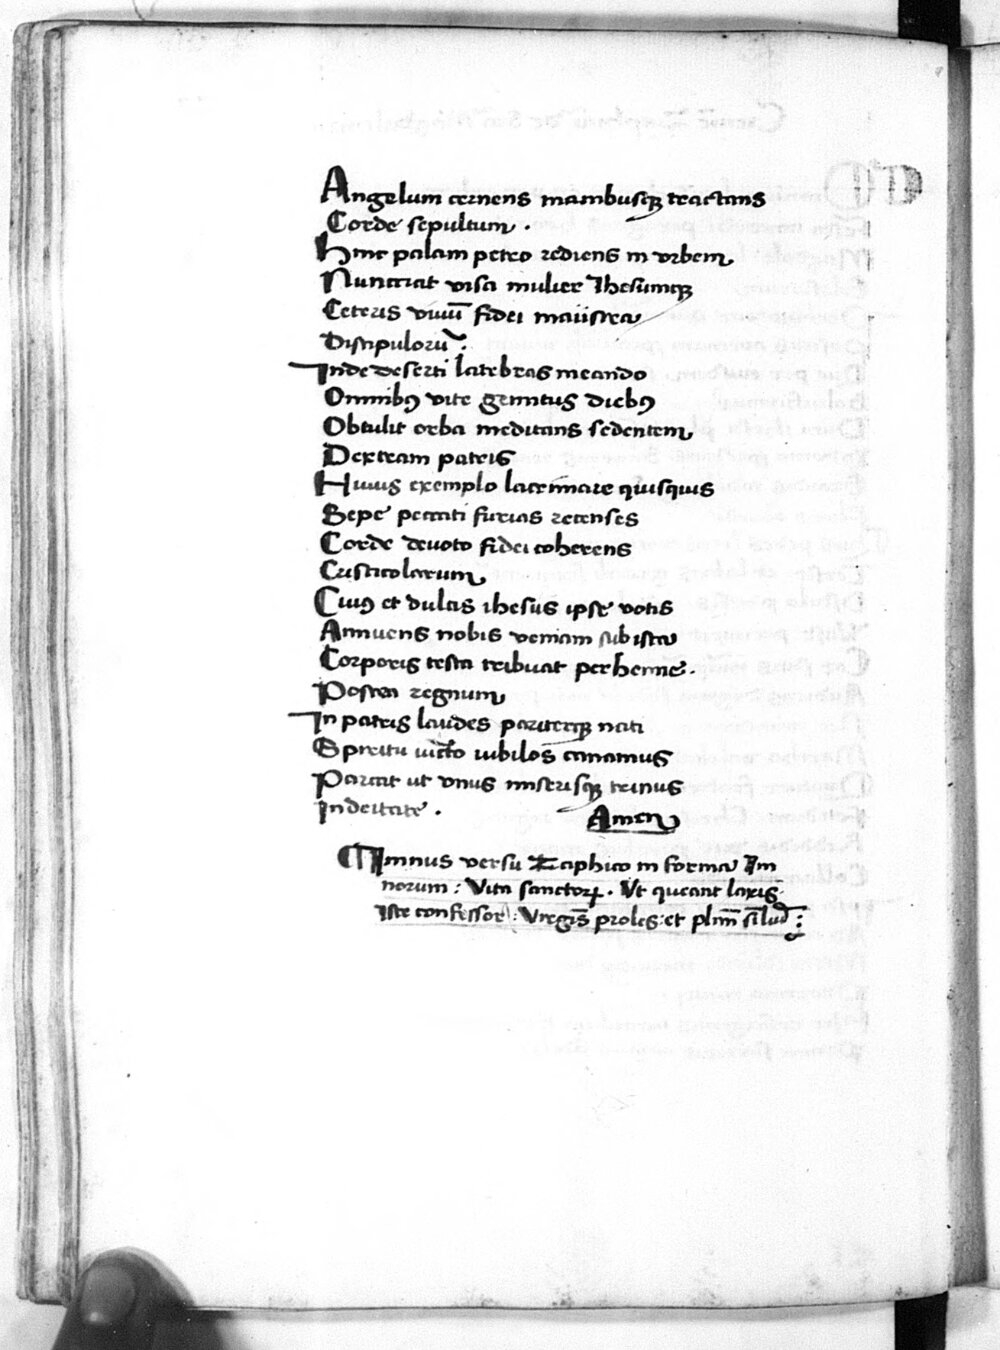 Angelum cernens manibusqꝫ tractans
Corde sepultum .
Hinc palam petro rediens in vrbem
Nunctiat visa mulier Ihesumqꝫ
Ceteris viuū fidei maiistra
Discipulorū .
Inde deserti latebras meando
Omnibꝰ vite gemitus diebꝰ
Obtulit orba meditans sedentem
Dexteram patris
Huius exemplo lacrimare quisquis
Sepe peccati furias recenses
Corde deuoto fidei coherens
Cristicolarum
Cuiꝰ et dulcis ihesus ipse votis
Annuens nobis veniam sub ista
Corporis testa tribuat perhenne .
Postea regnum
In patris laudes pariterqꝫ nati
Spreitu iucto iubilos canamus
Parcat ut vnus miserisqꝫ trinus
In deitate . Amen
Imnus versu Zaphico in forma Im
norum : Vita sanctorꝝ . Ut queant laxis
Iste confessor : V regis proles : et